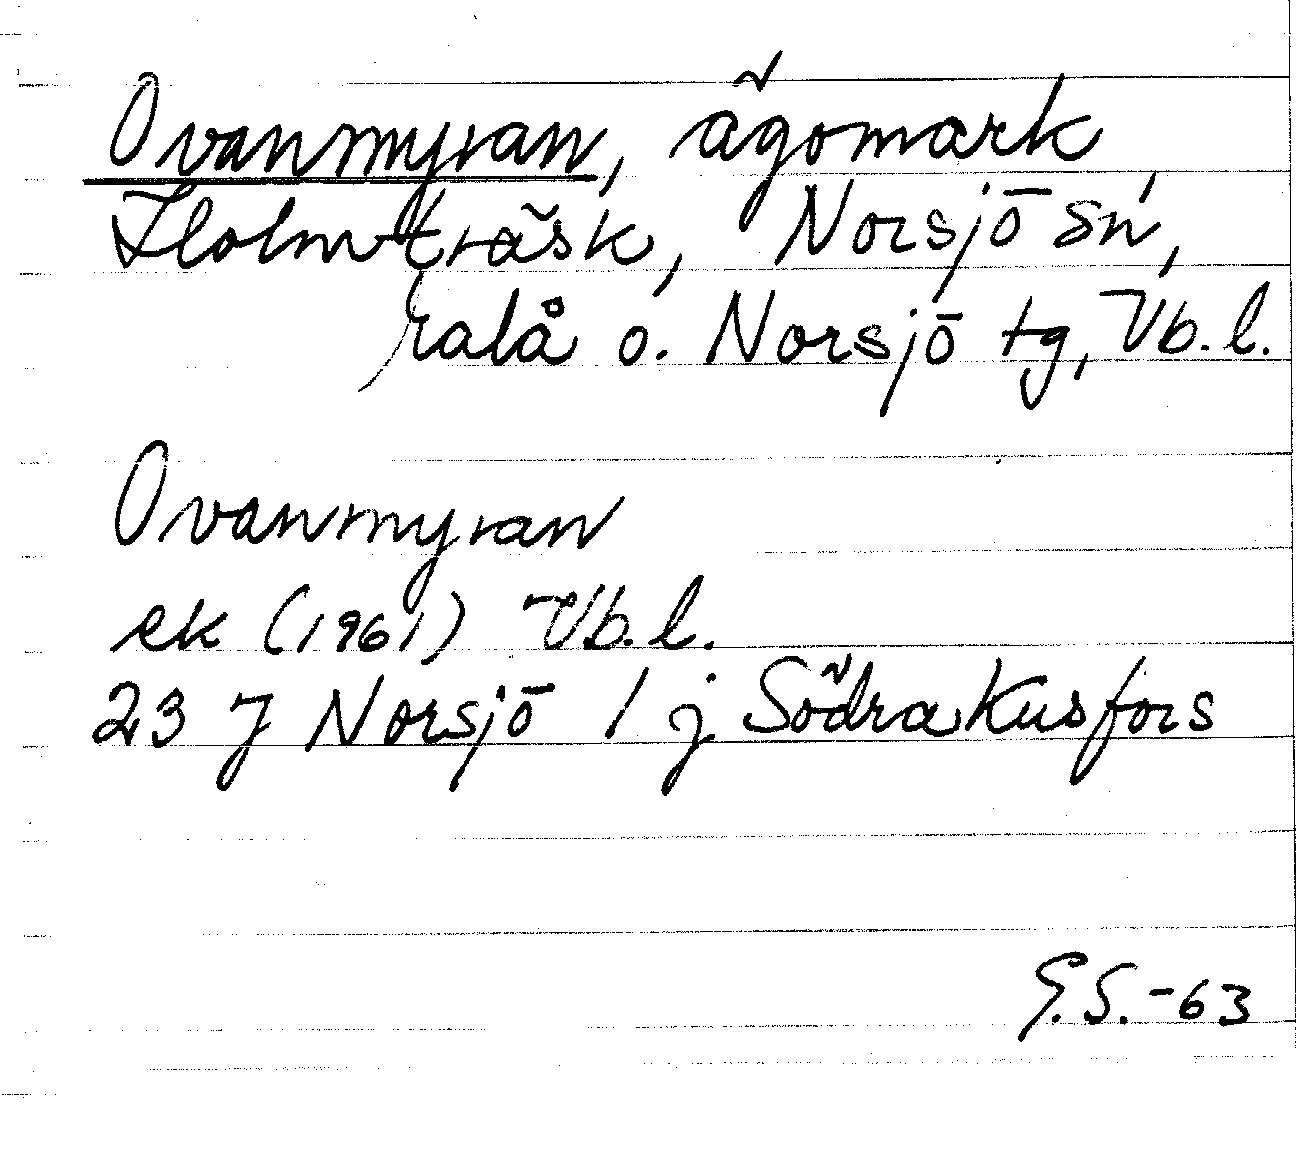 Ovanmyran, ägomark
Holmträsk, Norsjö sn,
Malå o. Norsjö tg, Vb. l.
Ovanmyran
ek (1961) Vb. l.
23 J Norsjö 1 j Södra Kusfors
G.S.-63